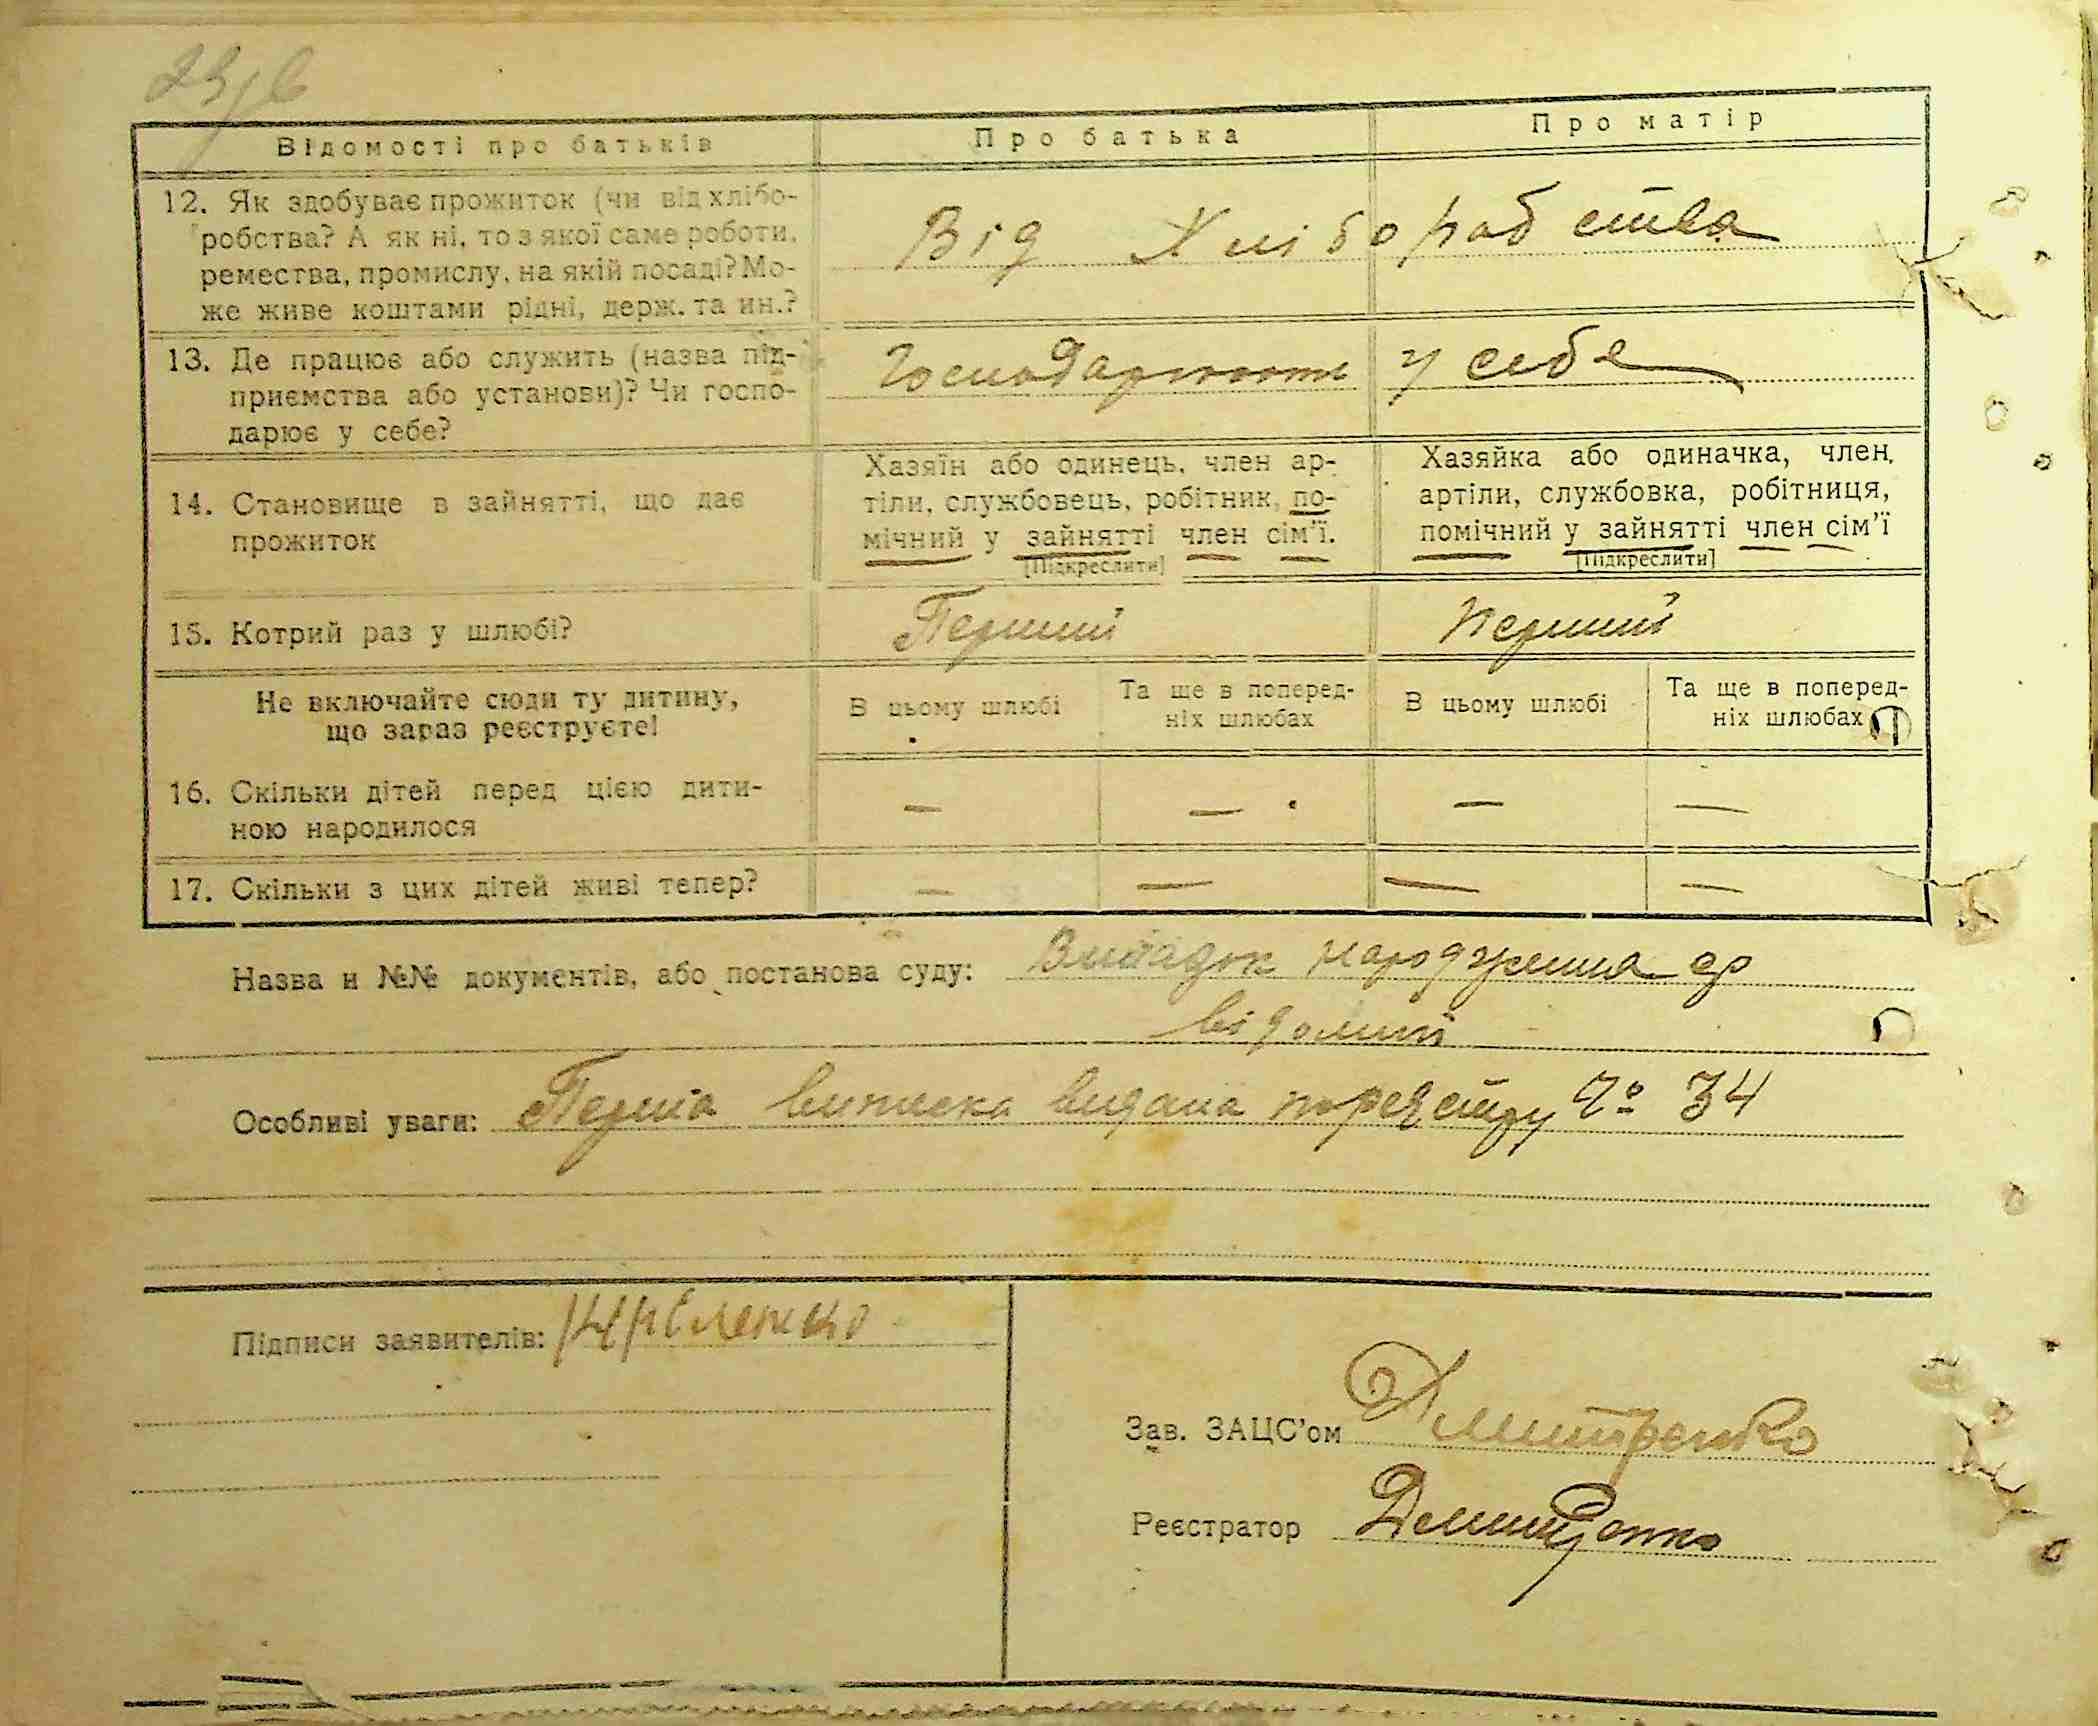 Відомості про батьків Про батька Про матір
12. Як здобуває прожиток (чи від хлібо-
робства? А як ні, то з якої саме роботи,
ремества, промислу, на якій посаді? Мо-
же живе коштами рідні, держ. та ин.?
Від Хліборобства
13. Де працює або служить (назва під-
приємства або установи)? Чи госпо-
дарює у себе?
у себе
14. Становище в зайнятті, що дає
прожиток
Хазяїн або одинець, член ар-
тіли, службовець, робітник, по-
мічний у зайнятті член сім'ї.
[Підкреслити]
Хазяйка або одиначка, член
артіли, службовка, робітниця,
помічний у зайнятті член сім'ї
[Підкреслити]
15. Котрий раз у шлюбі? Перший Перший
Не включайте сюди ту дитину,
що зараз реєструєте!
В цьому шлюбі
Та ще в поперед-
ніх шлюбах
В цьому шлюбі
Та ще в поперед-
ніх шлюбах
16. Скільки дітей перед цією дити-
ною народилося
— — — —
17. Скільки з цих дітей живі тепер?
— — — —
Назва и №№ документів, або постанова суду: Випадок народження
відомий
Особливі уваги: Перша виписка видана по реєстру № 34
Підписи заявителів:
Зав. ЗАЦС'ом Дмитренко
Реєстратор